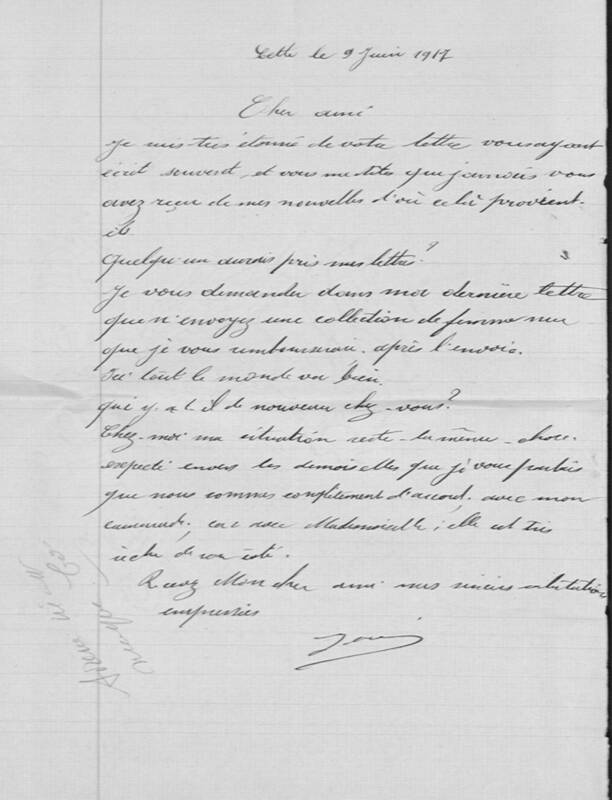 Cette le 9 Juin 1917
Cher ami
Je suis très étonné de votre lettre vous ayant
écrit souvent, et vous me dites que jamais vous
avez reçu de mes nouvelles d'où celà provient-
il
Quelqu'un aurais pris mes lettres?
Je vous demander dans ma dernière lettre
que n'envoyez une collection de femme nue
que je vous rembourserai après l'envoie.
Ici tout le monde va bien.
qui y. a t. il de nouveau chez-vous?
Chez-moi ma situation reste la même chose
excepté envers les demoiselles que je vous parlais
que nous sommes complètement d'accord. avec mon
camarade, avec Mademoiselle; elle est très
riche de son côté.
Recevez Mon cher ami mes
empressées